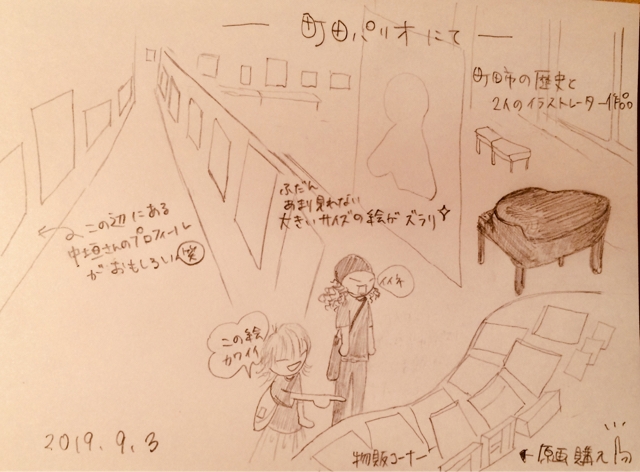 ― 町田パリオにて ―
町田市の歴史と
2人のイラストレーター作品
ふだん
あまり見れない
大きいサイズの絵がズラリ
この辺にある
中垣さんのプロフィール
がおもしろい 笑
イイネ
この絵
カワイイ
2019.9.3
物販コーナー
←原画購入